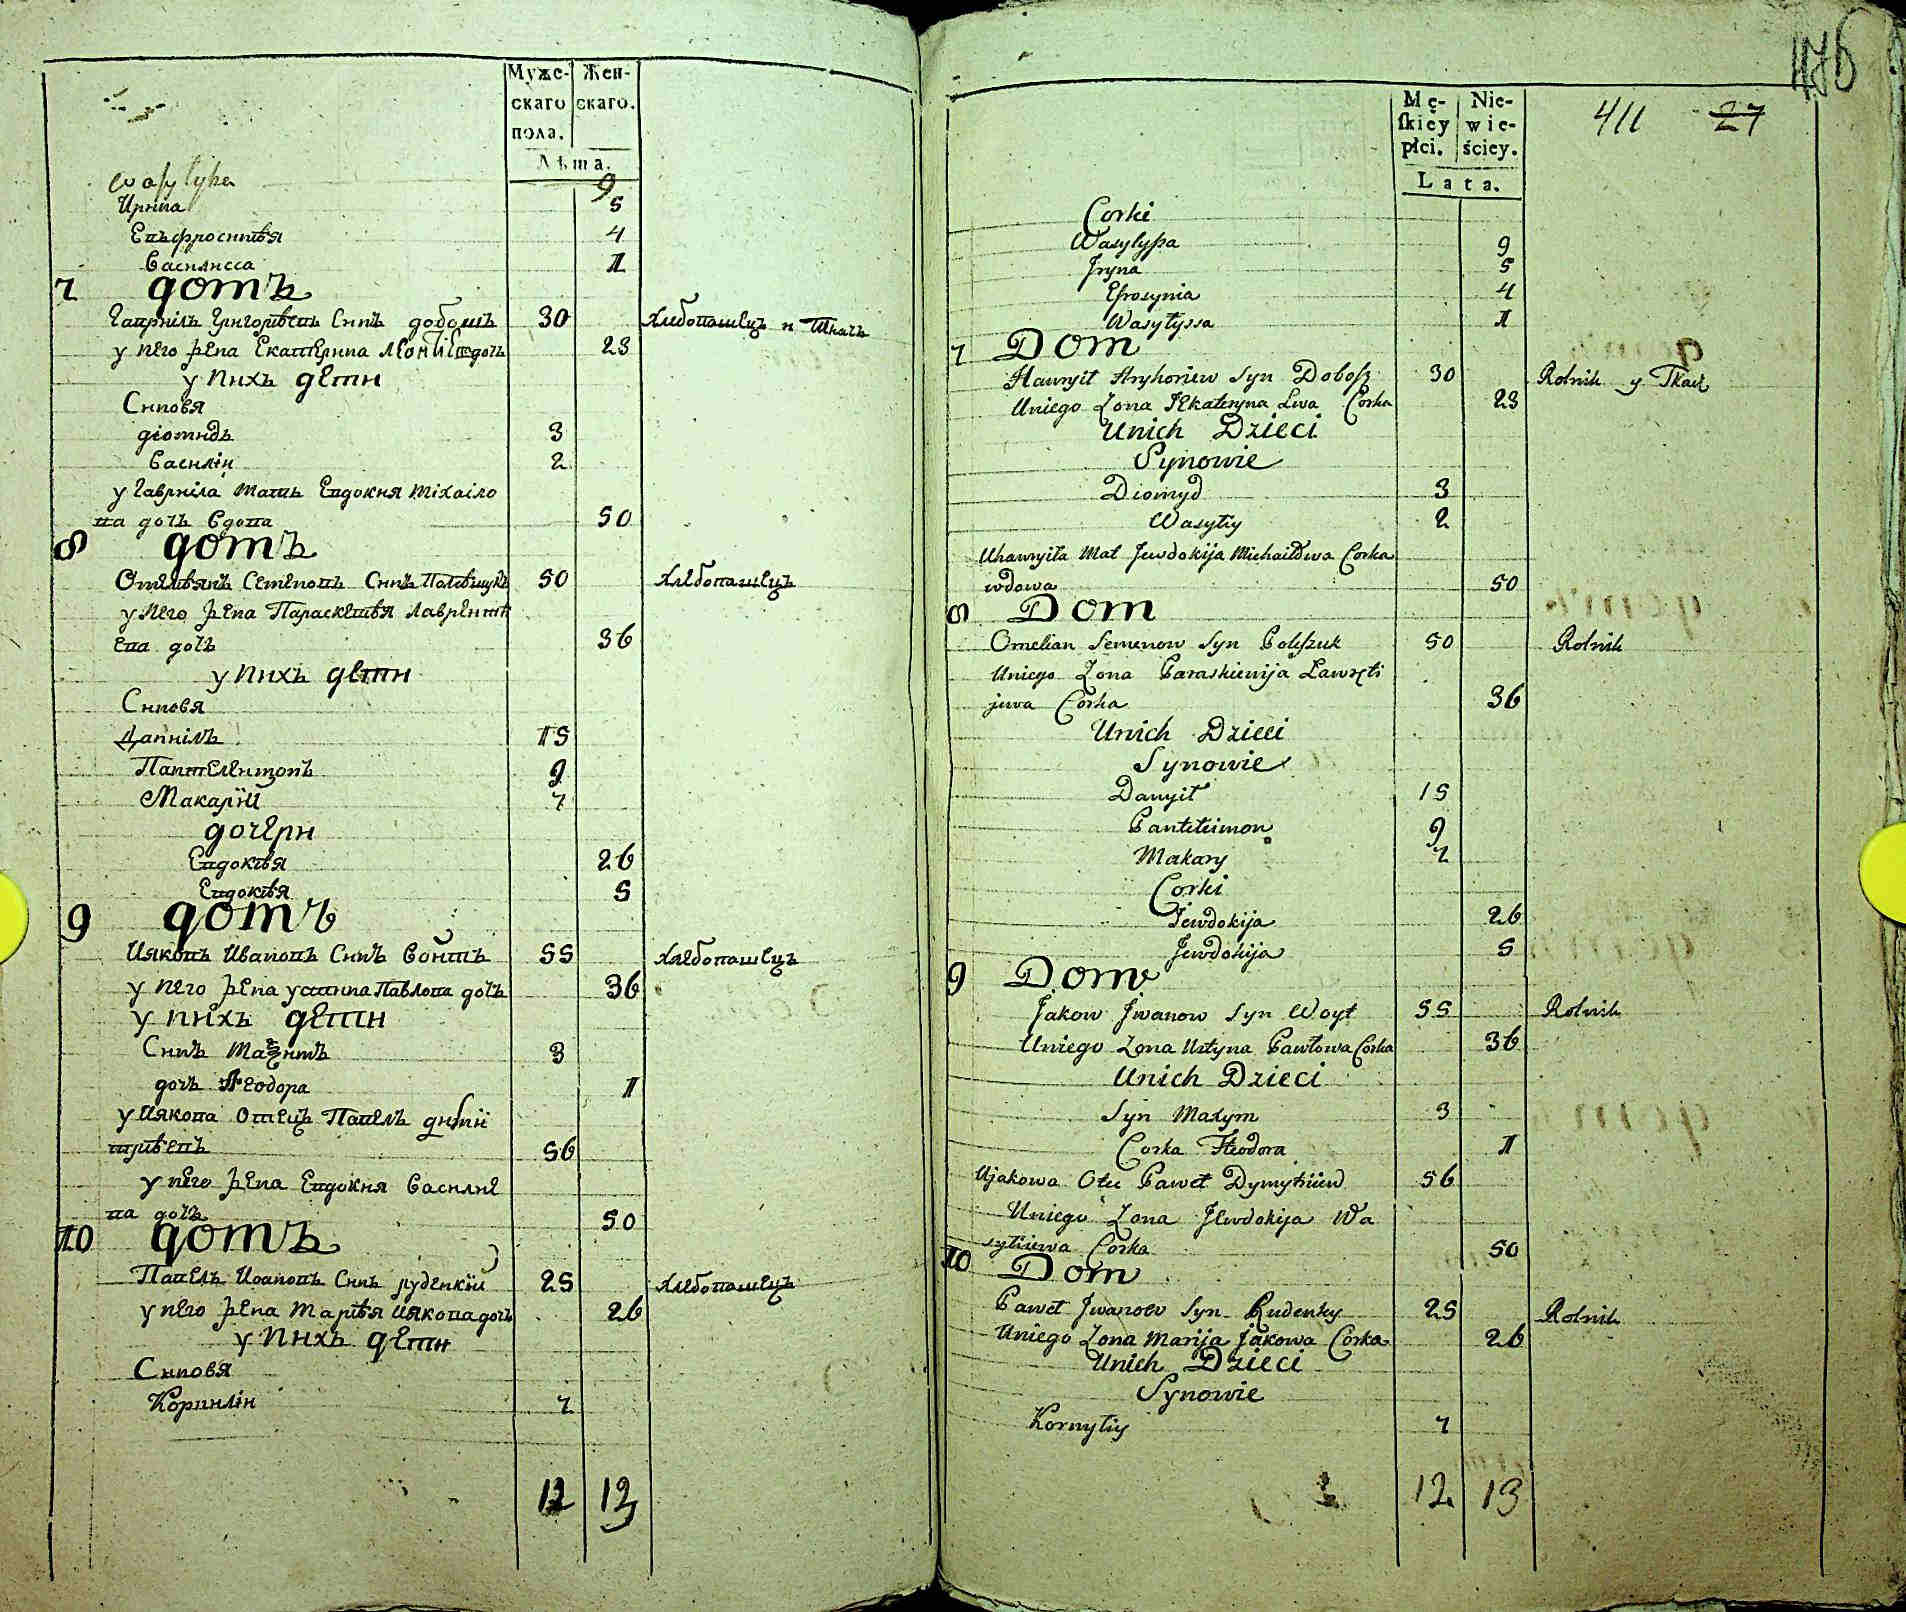 Муже- Жен-
скаго скаго.
пола.
Лѣта.
wasylysa 9
Ирина 5
Епъфросинѣя 4
Василисса 1
7 домъ
Гаврнілъ Григорѣевъ Снпъ добошъ 30 Хлѣбопашецъ и Ткачъ
у него жена Екатерина Леонтіева дочъ 23
у нихъ дети
Сиповя
діомидъ 3
Василій 2
у Гавриіла мать Евдокия Міхаіло
ва дочъ вдова 50
8 домъ
Омелѣянъ Семеновъ Синъ Полѣщукъ 50 Хлебопашецъ
у него жена Параскевѣя Лаврентѣ
ева дочъ 36
у нихъ дети
Синовя
Даниілъ 15
Пантелеимонъ 9
Макарїй 7
дочери
Евдокѣя 26
Евдокѣя 5
9 домъ
Ияковъ Ивановъ Синъ Войтъ 55 Хлебопашецъ
у него жена устина Павлова дочъ 36
у нихъ дети
Синъ Маѯимъ 3
дочъ Феодора 1
у Иякова Отецъ Павелъ дими
трѣевъ 56
у него жена Евдокия Василие
ва дочъ 50
10 домъ
Павелъ Ивановъ Синъ руденкїй 25 Хлебопашецъ
у него жена Марѣя Иякова дочъ 26
у нихъ дети
Синовя
Корнилій 7
12 13
476
Mę- Nie-
ſkiey wie-
płci. ściey.
Lata.
411 27
Corki
Wasylysa 9
Jryna 5
Efrosynia 4
Wasyłyssa 1
7 Dom
Hawryił Hryhoriew Syn Dobosz 30 Rolnik y Tkacz
Uniego Zona JEkateryna Lwa Corka 23
Unich Dzieci
Synowie
Diomyd 3
Wasyliy 2
Uhawryiła Mat Jewdokija Michaiłowa Corka
wdowa 50
8 Dom
Omelian Semenow Syn Poliszuk 50 Rolnik
Uniego Zona Paraskiewija Ławręti
jewa Corka 36
Unich Dzieci
Synowie
Danyił 15
Panteleimon 9
Makary 7
Corki
Jewdokija 26
Jewdokija 5
9 Dom
Jakow Jwanow Syn Woyt 55 Rolnik
Uniego Zona Ustyna Pawłowa Corka 36
Unich Dzieci
Syn Maxym 3
Corka Fteodora 1
Ujakowa Otec Paweł Dymytriiew 56
Uniego Zona JEwdokija Wa
syliewa Corka 50
10 Dom
Paweł Jwanow Syn Rudenky 25 Rolnik
Uniego Zona Marija Jakowa Corka 26
Unich Dzieci
Synowie
Kornyliy 7
12 13